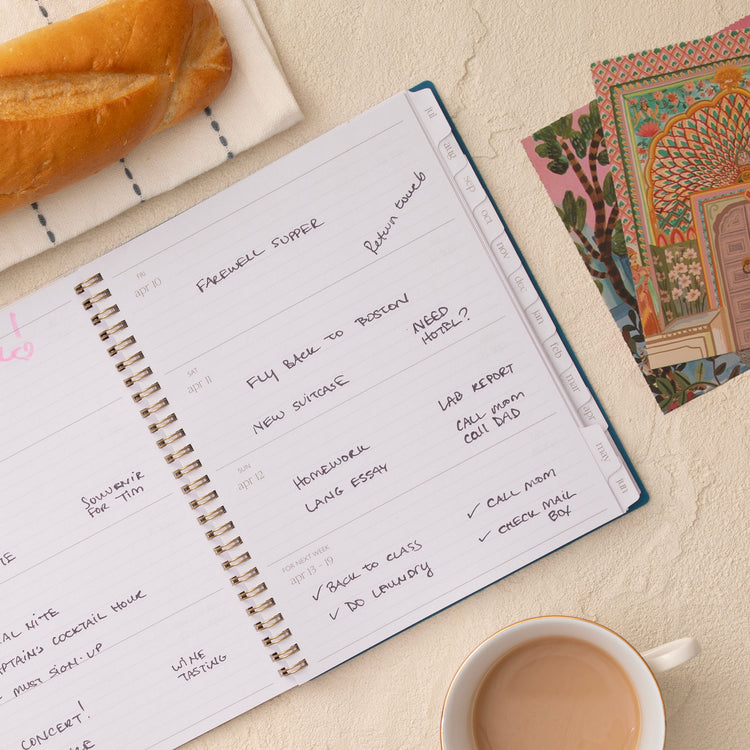 SOUVENIR
FOR TIM
NITE
COCKTAIL HOUR
MUST SIGN-UP
WINE
TASTING
CONCERT!
FRI
apr 10
FAREWELL SUPPER
Return towels
SAT
apr 11
FLY BACK TO BOSTON
NEW SUITCASE
NEED
HOTEL?
SUN
apr 12
HOMEWORK
LANG ESSAY
LAB REPORT
CALL MOM
CALL DAD
FOR NEXT WEEK
apr 13 - 19
✓ BACK TO CLASS
✓ DO LAUNDRY
✓ CALL MOM
✓ CHECK MAIL
BOX
jul
aug
sep
oct
nov
dec
jan
feb
mar
apr
may
jun